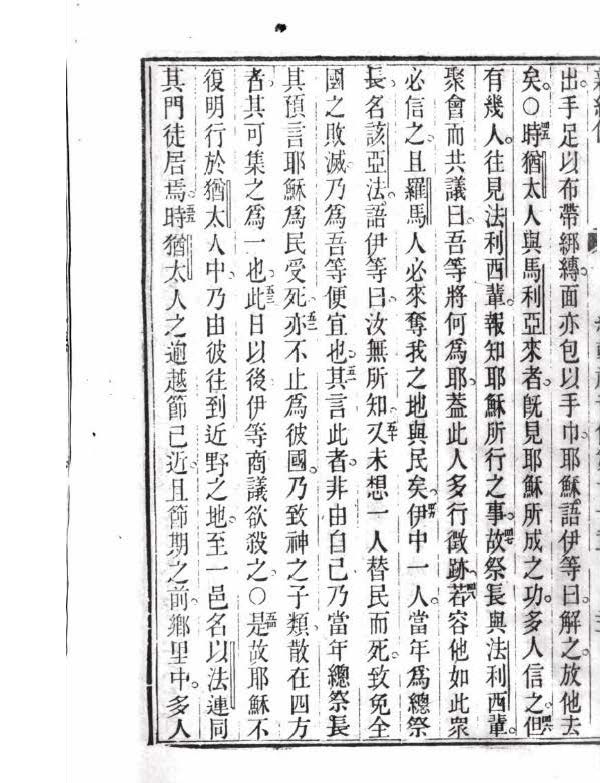 出。手足以布帶綁縳。面亦包以手巾。耶穌語伊等曰。解之。放他去
矣。○四五時猶太人與馬利亞來者。旣見耶穌所成之功。多人信之。四六但
有幾人往見法利西輩。報知耶穌所行之事。四七故祭長與法利西輩。
聚會而共議曰。吾等將何爲耶。葢此人多行徵跡。四八若容他如此衆
必信之。且羅馬人必來奪我之地與民矣。四九伊中一人。當年爲總祭
長。名該亞法。語伊等曰。汝無所知。五十又未想一人替民而死。致免全
國之敗滅。乃爲吾等便宜也。五一其言此者。非由自己。乃當年總祭長
其預言耶穌爲民受死。五二亦不止爲彼國。乃致神之子類散在四方
者。其可集之爲一也。五三此日以後伊等商議欲殺之。○五四是故耶穌不
復明行於猶太人中。乃由彼往到近野之地。至一邑名以法連。同
其門徒居焉。五五時猶太人之逾越節已近。且節期之前。鄉里中。多人